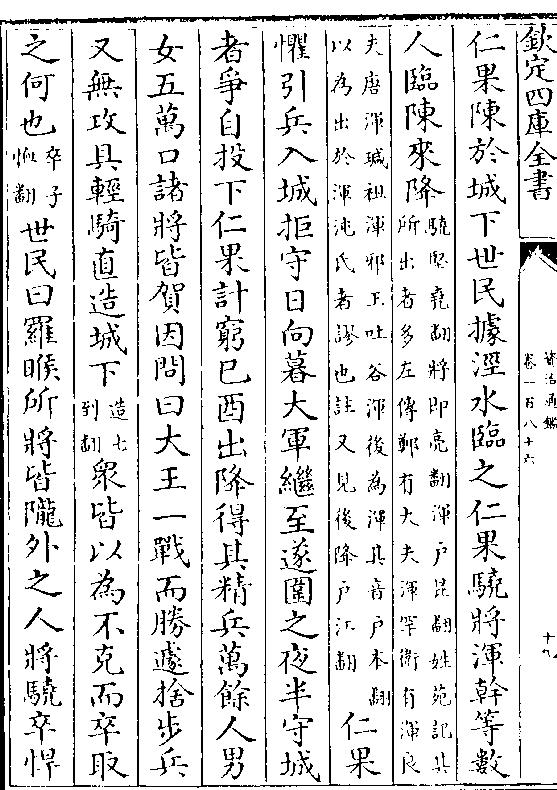 欽定四庫全書
資治通鑑
卷一百八十六
十九
仁果陳於城下世民據涇水臨之仁果驍將渾幹等數
人臨陳來降驍堅堯翻將即亮翻渾戶昆翻姓苑記其
所出者多左傳鄭有大夫渾罕衛有渾良
夫唐渾瑊祖渾邪王吐谷渾後為渾具音戶本翻
以為出於渾沌氏者謬也註又見後降戶江翻仁果
懼引兵入城拒守日向暮大軍繼至遂圍之夜半守城
者爭自投下仁果計窮已酉出降得其精兵萬餘人男
女五萬口諸將皆賀因問曰大王一戰而勝遽捨步兵
又無攻具輕騎直造城下造七到翻衆皆以為不克而卒取
之何也卒子恤翻世民曰羅睺所將皆隴外之人將驍卒悍